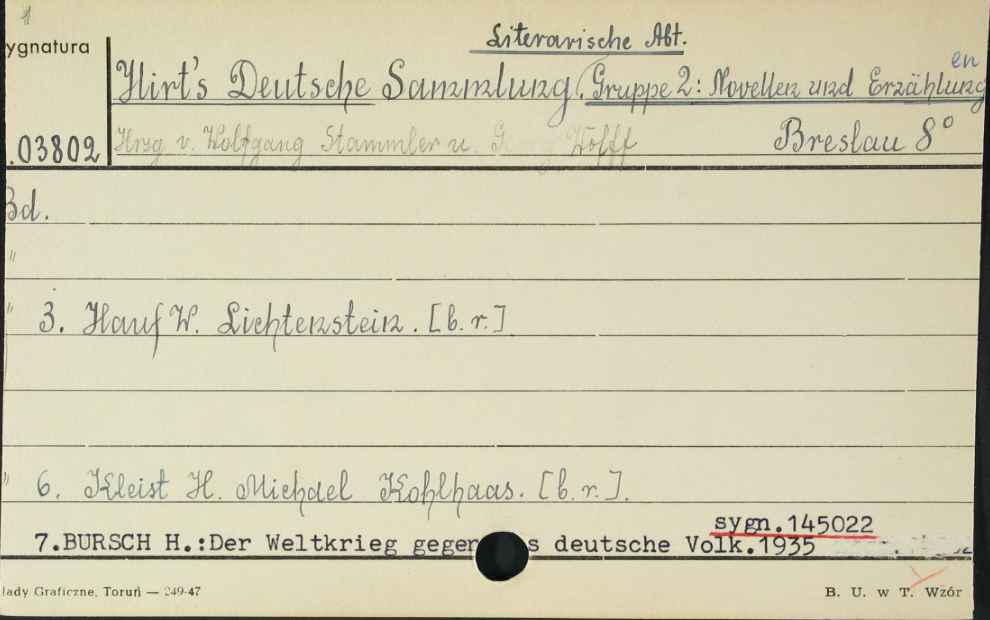 Literarische Abt.
ygnatura
Hirt's Deutsche Sammlung, Gruppe 2: Novellen und Erzählungen
.03802 Hrsg v. Wolfgang Stammler u. Wolff Breslau 8°
Bd.
"
" 3. Hauf W. Lichtenstein. [b. r.]
" 6. Kleist H. Michael Kohlhaas. [b. r.].
sygn.145022
7.BURSCH H.:Der Weltkrieg gegen s deutsche Volk.1935
lady Graficzne, Toruń — 249-47 B. U. w T. Wzór